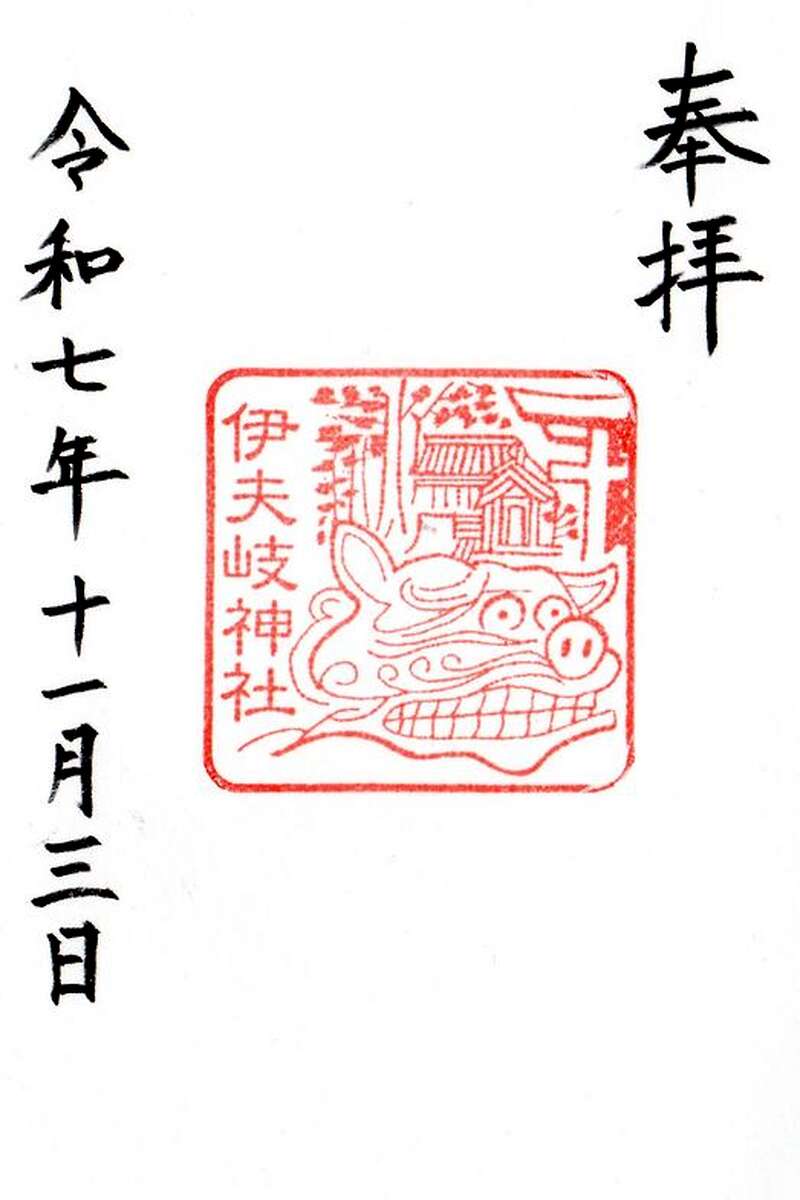 奉拝
伊夫岐神社
令和七年十一月三日